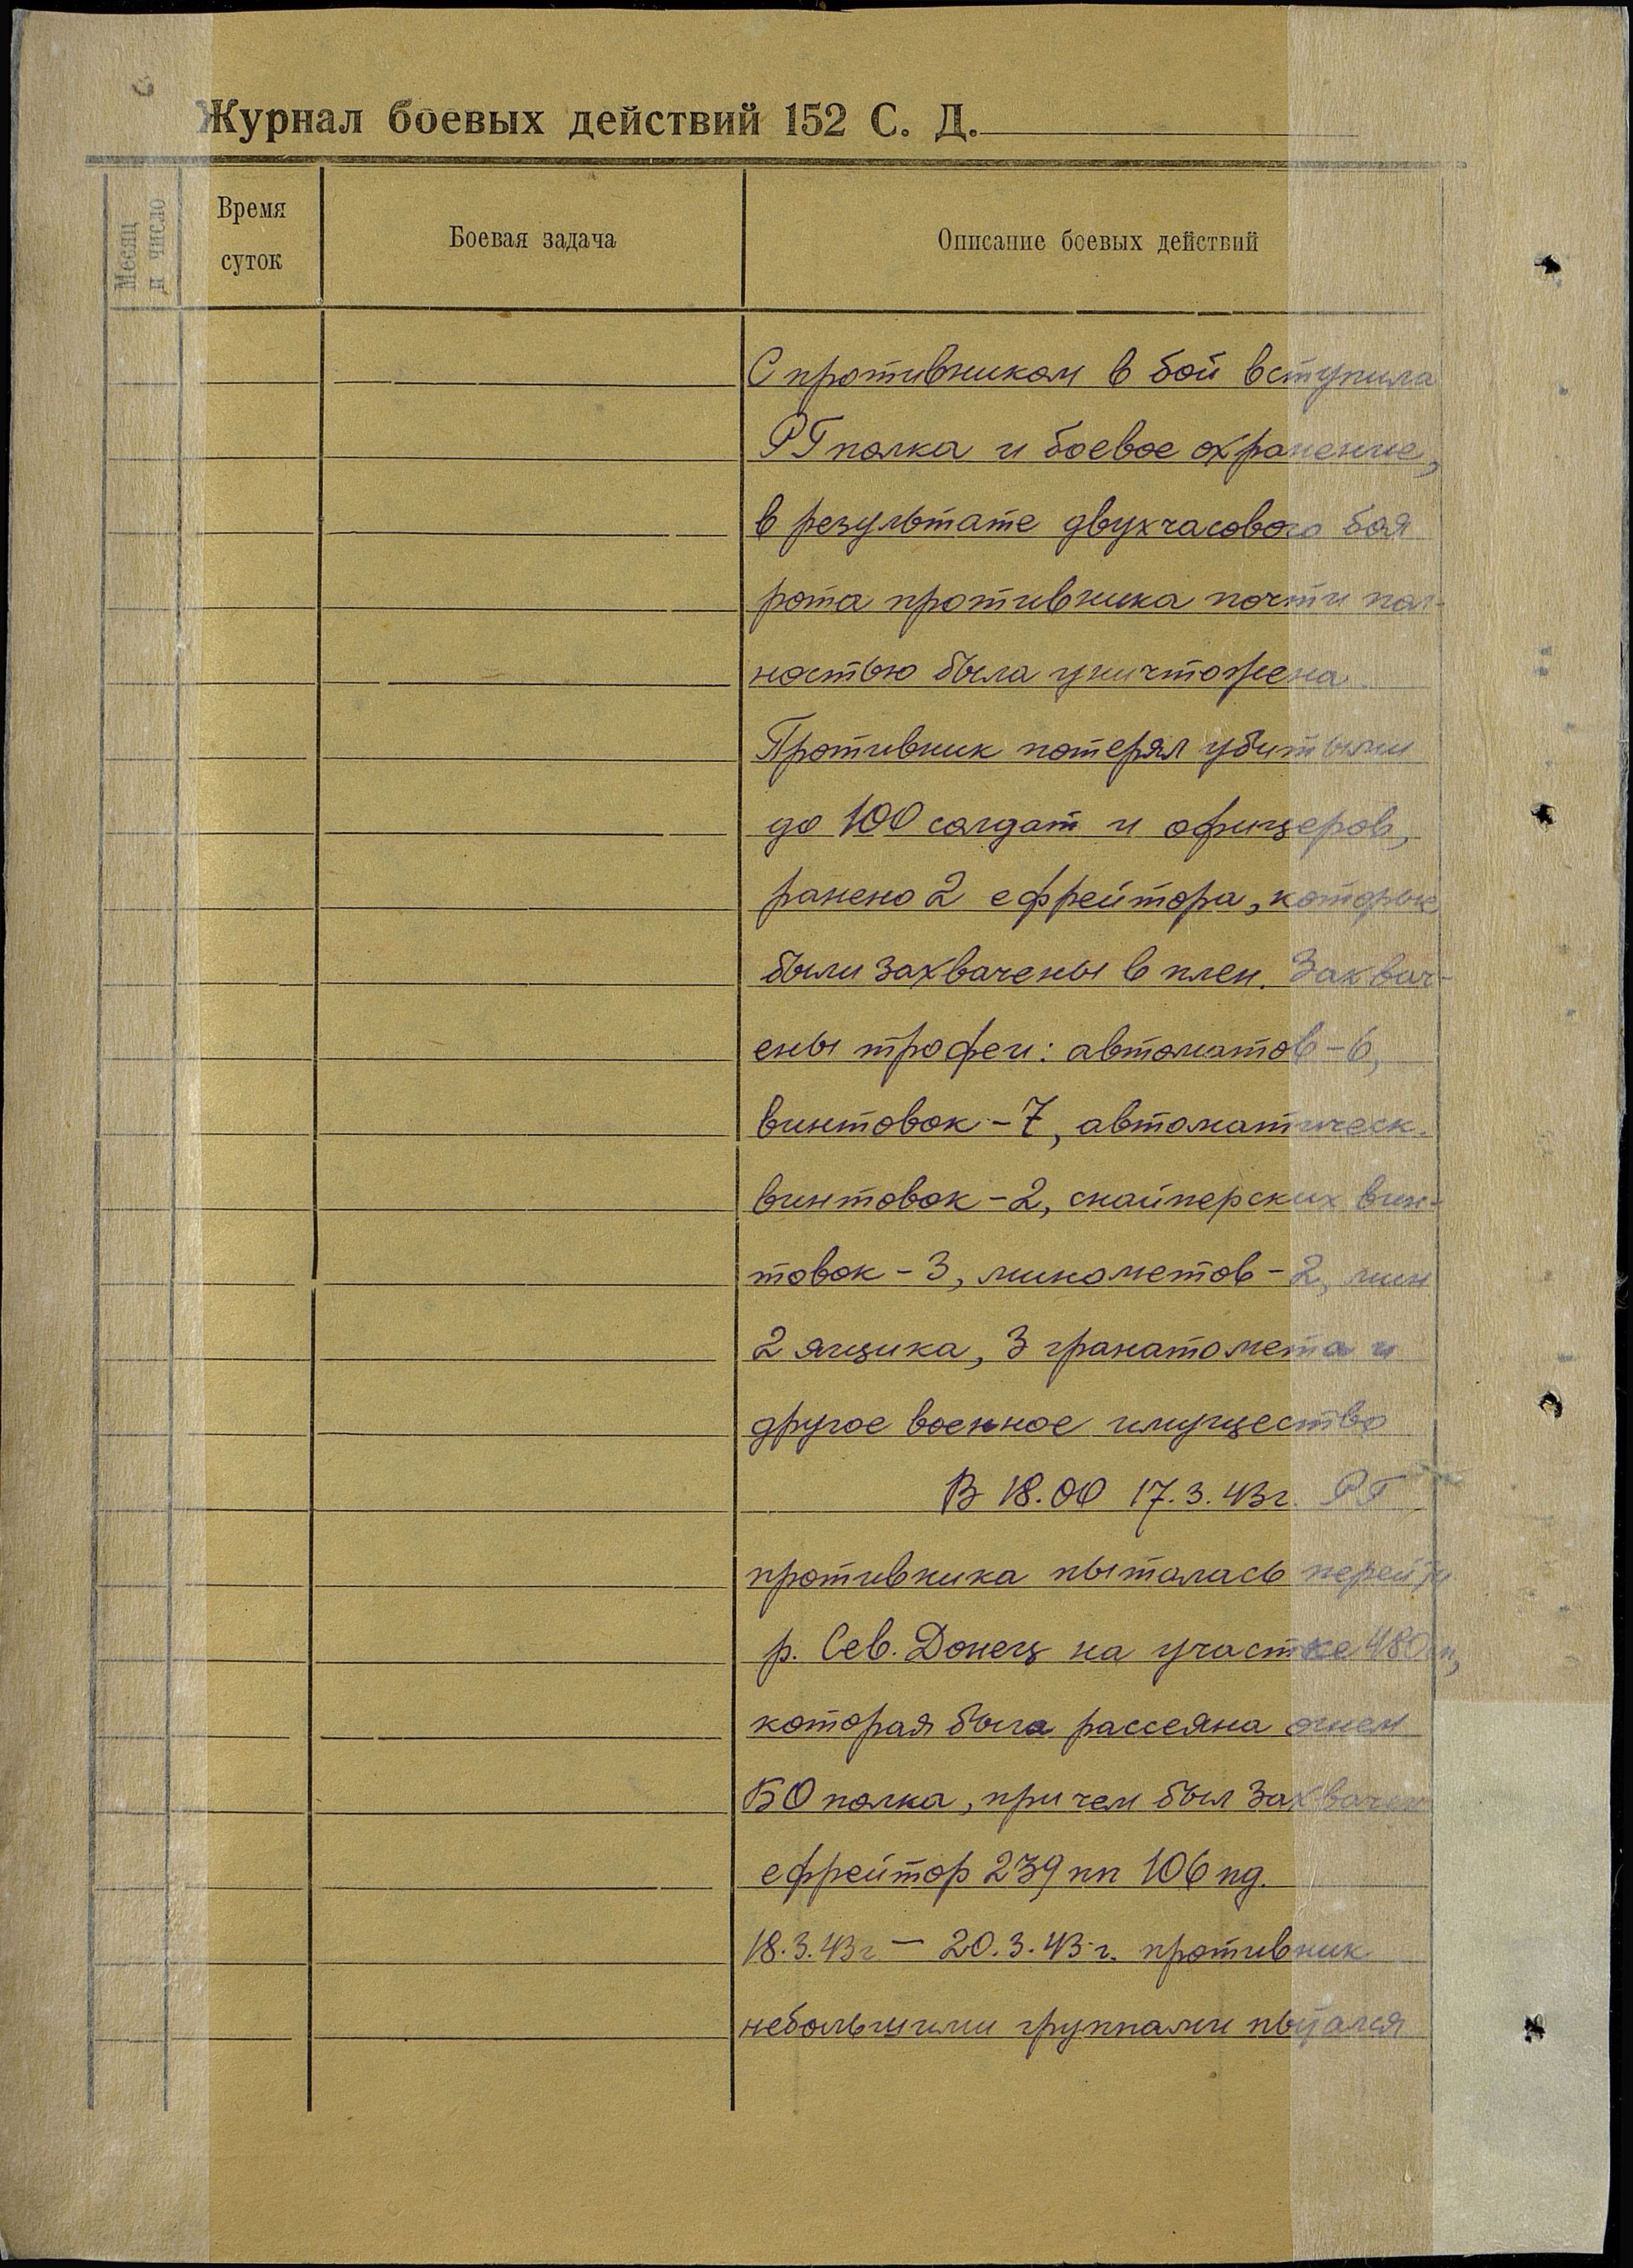 Журнал боевых действий 152 С. Д.
Месяц и число
Время суток
Боевая задача
Описание боевых действий
С противником в бой вступила
РГ полка и боевое охранение,
в результате двухчасового боя
рота противника почти пол-
ностью была уничтожена
Противник потерял убитыми
до 100 солдат и офицеров,
ранено 2 ефрейтора, которые
были захвачены в плен. Захвач-
ены трофеи: автоматов – 6,
винтовок – 7, автоматическ.
винтовок – 2, снайперских вин-
товок – 3, минометов – 2, мин
2 ящика, 3 гранатомета и
другое военное имущество
В 18.00 17.3.43г. РГ
противника пыталась перейти
р. Сев. Донец на участке 480 сп,
которая была рассеяна огнем
БО полка, при чем был захвачен
ефрейтор 239 пп 106 пд.
18.3.43г – 20.3.43 г. противник
небольшими группами пытался